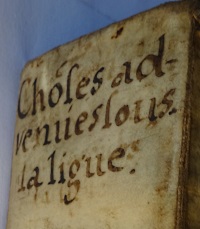 Choſes ad-
venues ſous.
la ligue.